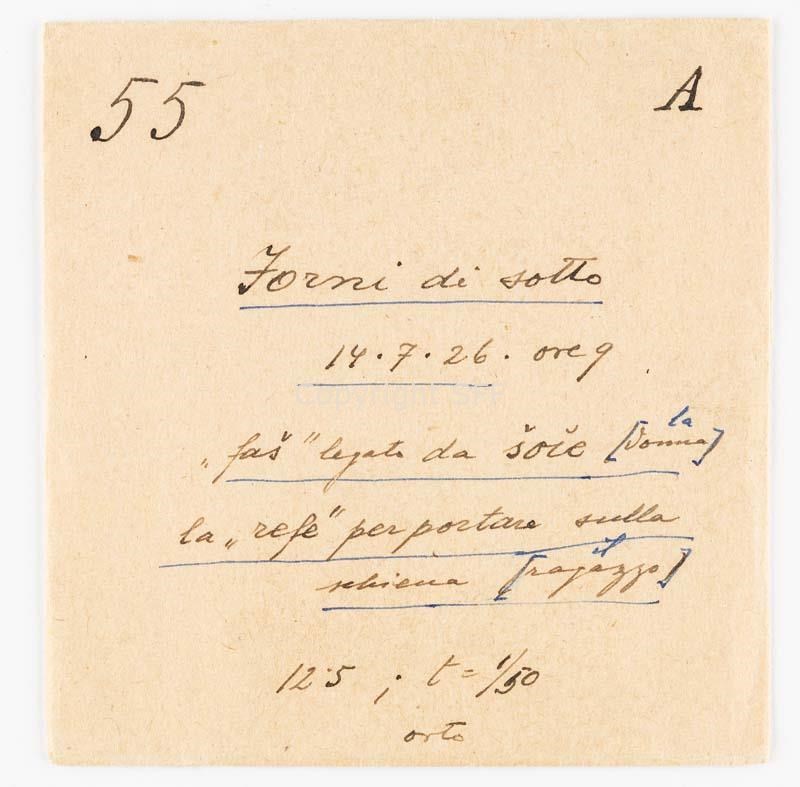 55 A
Forni di sotto
14.7.26. ore 9
„faš" legato da šoče [la donna]
la „refe" per portare sulla
schiena [il ragazzo]
12.5 ; t = 1/50
orto